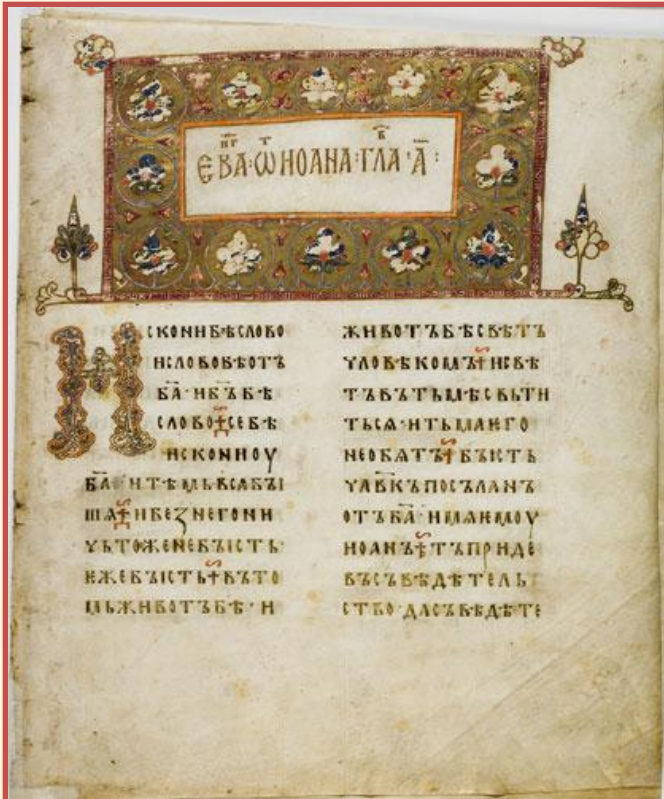 ЕВА·ѾИОАНА·ГЛА·А҃:
ИСКОНИБѢСЛОВО
ИСЛОВОБѢОТЪ
БА҃·ИБЪ҃БѢ
СЛОВО·СЕБѢ
ИСКОНИОУ
БА҃·ИТѢМЬВСАБЪІ
ШѦ·ИБЕЗНЕГОНИ
ЧЬТОЖЕНЕБЪІСТЬ·
ЕЖЕБЪІСТЬ·ВЪТО
МЬЖИВОТЪБѢ·И
ЖИВОТЪБѢСВѢТЪ
ЧЛОВѢКОМЪ·ИСВѢ
ТЪВЪТЬМѢСВЬТИ
ТЬСѦ·ИТЬМАѤГО
НЕОБѦТЪ·БЪІСТЬ
ЧЛВ҃КЪПОСЪЛАНЪ
ОТЪБА҃·ИМѦѤМОУ
ИОАНЪ·ТЪПРИДЕ
ВЪСЪВѢДѢТЕЛЬ
СТВО·ДАСЪВѢДѢТЕ